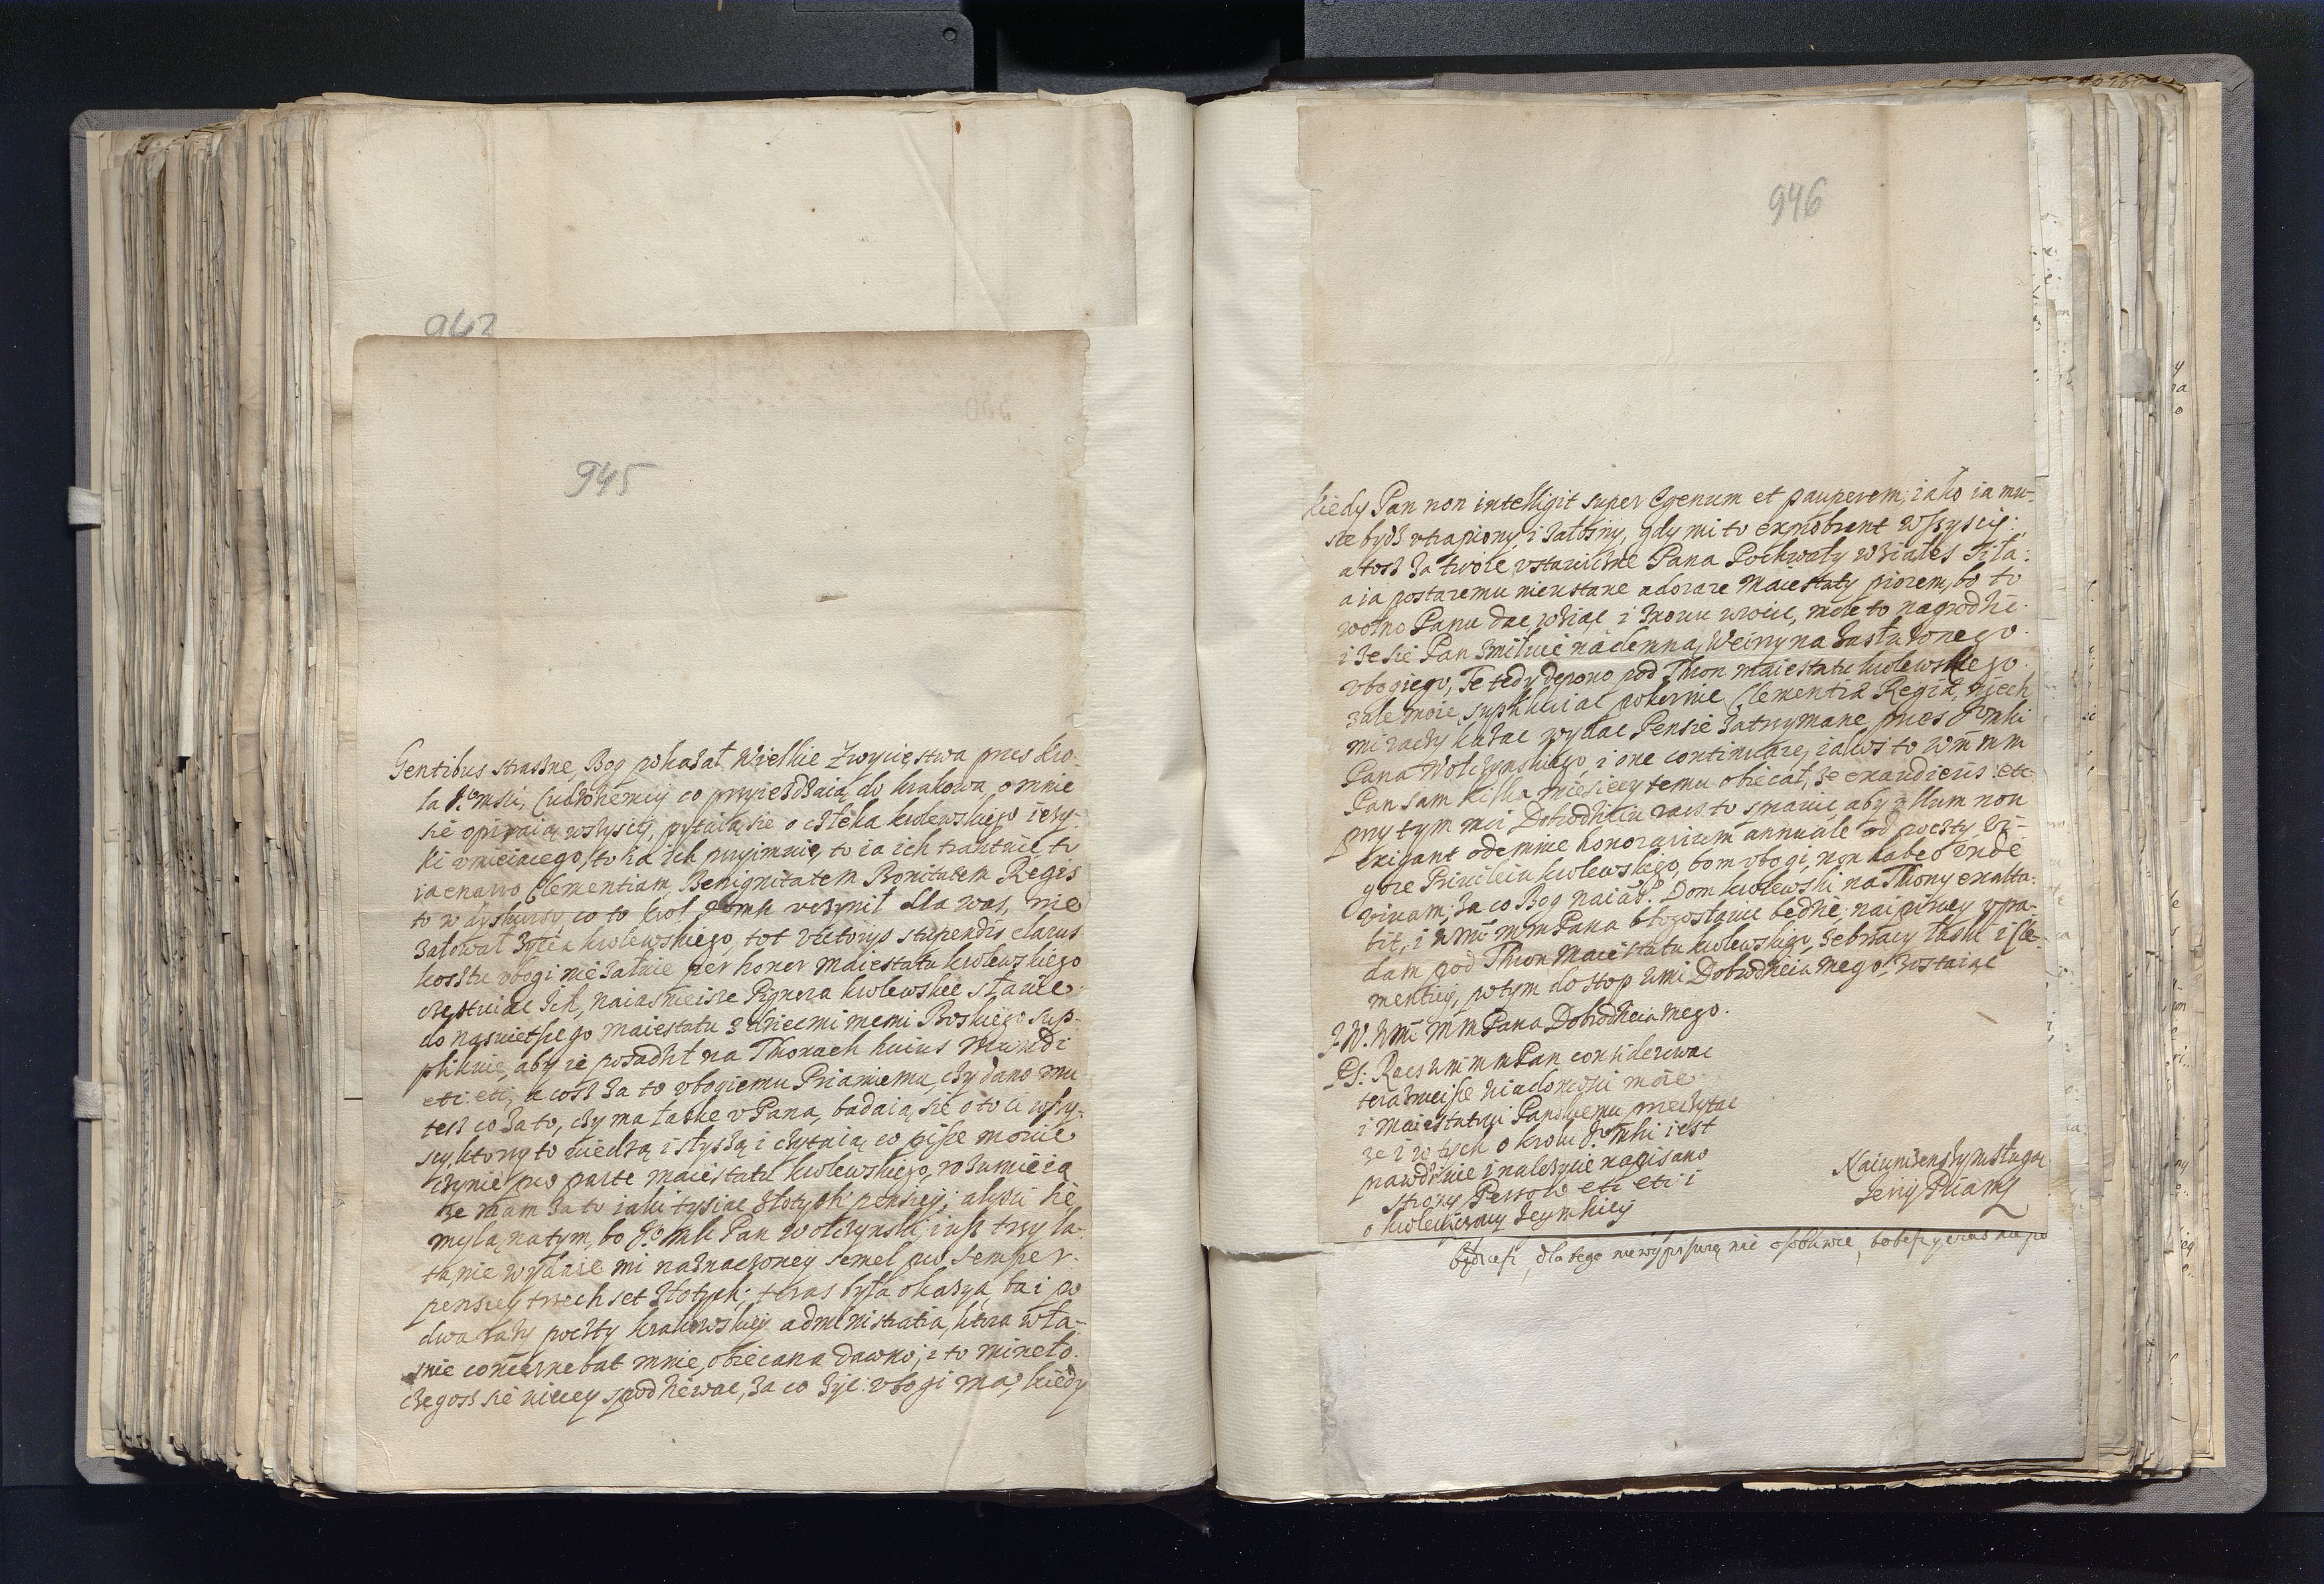 943
945
Gentibus straszne, Bog pokazał Wielkie Zwycięstwa przes Kro-
la Jo msci, Cudzoziemcy co przyiezdzaią do Krakowa, o mnie
się opieraią wszyscy, pytaią się o człeka krolewskiego ięzy-
ki vmieiącego, to ia ich przyimuię, to ia ich traktuię, to
ia enarro Clementiam, Benignitatem Bonitatem Regis
to w dyskursy, co to krol Jo mść vczynił dla was, nie
załował zycia krolewskiego, tot victorijs stupendis clarus
kosztu vbogi nie załuie per honor Maiestatu krolewskiego
częstuiąc Ich, naiasnieisze Pignora krolewskie stawię
do naswietszego maiestatu z dziecmi memi Boskiego sup-
plikuię, aby ie posadził na Thronach huius Mundi
etc: etc, a cosz za to vbogiemu Priamiemu, czy dano mu
tesz co za to, czy ma łaske v Pana, badaią się o to ci wszy-
scy, ktorzy to widzą i słyszą i czytaią co pisze mowię
czynie pro parte maiestatu krolewskiego, rozumieią
ze mam za to iaki tysiąc złotych pensiey; alysci się
mylą na tym, bo Jo mść Pan Wolczynski iusz trzy la-
ta nie wydaie mi naznaczoney semel pro semper
pensiey trzech set złotych; teras była okazya, ba i po
dwa razy poczty krakowskiey administratia, ktora wła-
snie concernebat mnie, obiecana dawno; i to mineło.
czegosz się więcey spodziewac, za co zyc vbogi ma, kiedy
946
kiedy Pan non intelligit super Egenum et pauperem; iako ia mu-
sze bydz vtrapiony i załosny, gdy mi to exprobrant wszyscy:
a tosz za twoie vstawiczne Pana Pochwały wziąłes
a ia postaremu nieustane adorare Maiestaty piorem, bo to
wolno Panu dac, wziąc i znowu wrocic, moze to nagrodzic
i ze się Pan zmiłuie nademną, Weirzy na zasłuzonego
vbogiego, Te tedy depono pod Thron maiestatu krolewskiego
zale moie, supplikuiąc pokornie Clementią Regią, niech
mi raczy kazac wydac Pensie zatrzymane przes Jo mści
Pana Wolczynskiego, i one continuare, iakos to Wm mm
Pan sam kilka miesiecy temu obiecał, ze exaudieris etc
przy tym moi Dobrodzieiu racz to sprawic aby vllum non
exigant odemnie honorarium annuale od poczty vi-
gore Priuileiu krolewskiego, bom vbogi, non habeo vnde
viuam; za co Bog Dom krolewski na Throny exalta-
bit, i Wm mm Pana błogosławic będzie; naipirwey vpa-
dam pod Thron Maiestatu krolewskiego, zebrzący łaski i Cle-
mentiey, potym do stop Wmci Dobrodzieia mego zostaiąc
J. W. Wmc mm Pana Dobrodzieia mego.
PS: Racz Wm mm Pan considerowac
teraznieisze wiadomosci moie
i Maiestatowi Panskiemu przeczytac
ze i w tych o krolu Jo mści iest
prawdziwie i nalezycie napisano
strony Persow etc etc i
o krolewiczowey Seymikiey
Naiunizenszym sługą
Jerzy Priamy
będzieſz, dla tego nie wypisuię nic osobliwie,